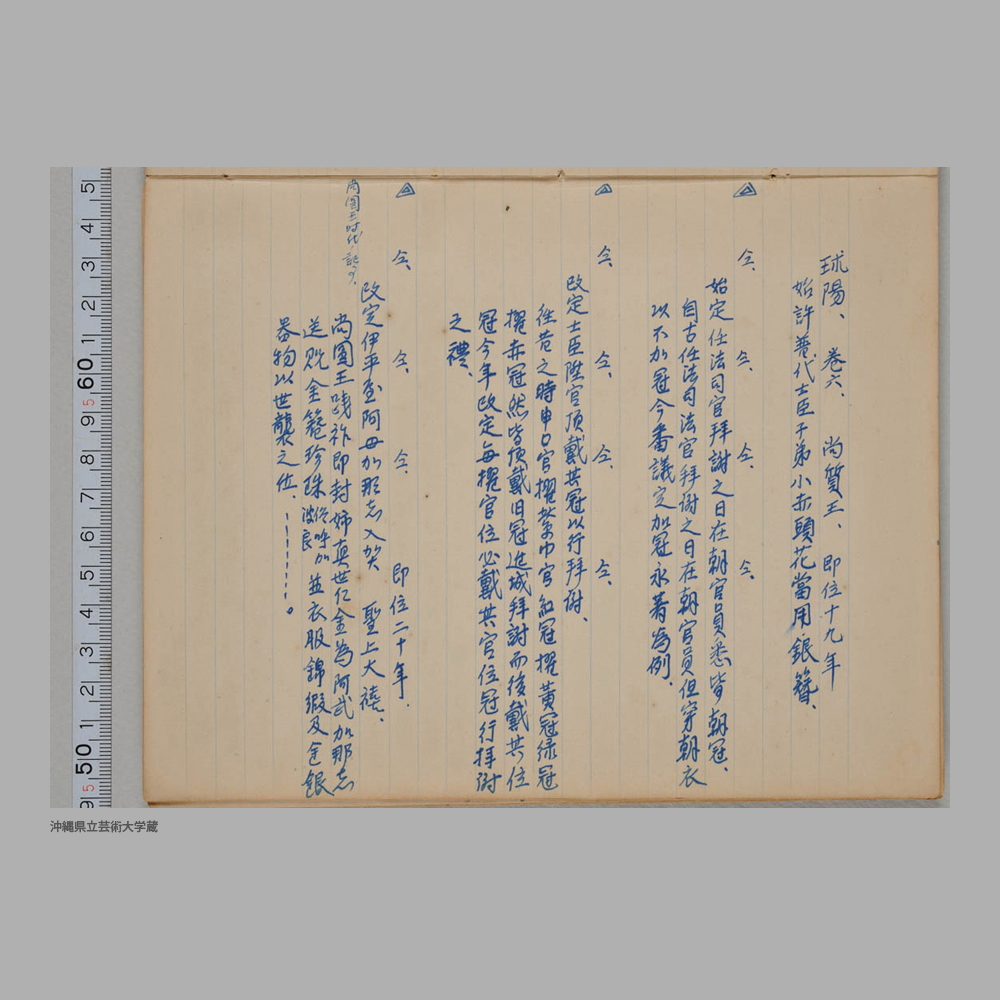 球陽、 卷六、 尚質王、 即位十九年
始許普代士臣子弟小赤頭花當用銀簪、
仝、 仝、 仝、 仝、
始定任法司官拜謝之日在朝官員悉皆朝冠、
自古任法司法官拜謝之日在朝官員但穿朝衣
以不加冠今番議定加冠永著為例、
仝、 仝、 仝、 仝、
改定士臣陞官頂戴其冠以行拜謝、
往昔之時申口官擢紫巾官紅冠擢黃冠綠冠
擢赤冠然皆頂戴旧冠進城拜謝而後戴其位
冠今年改定每擢官位必戴其官位冠行拜謝
之禮、
仝、 仝、 仝、 即位二十年、
尚圓王時代
改定伊平屋阿母加那志入貢 聖上大禧、
尚圓王踐祚即封姉真世仁金為阿武加那志
送貺金簪珍珠俗呼加波良並衣服錦緞及金銀
器物以世襲之位、------。
沖縄県立芸術大学蔵
5 4 3 2 1 60 9 8 7 6 5 4 3 2 1 50 9
5 5